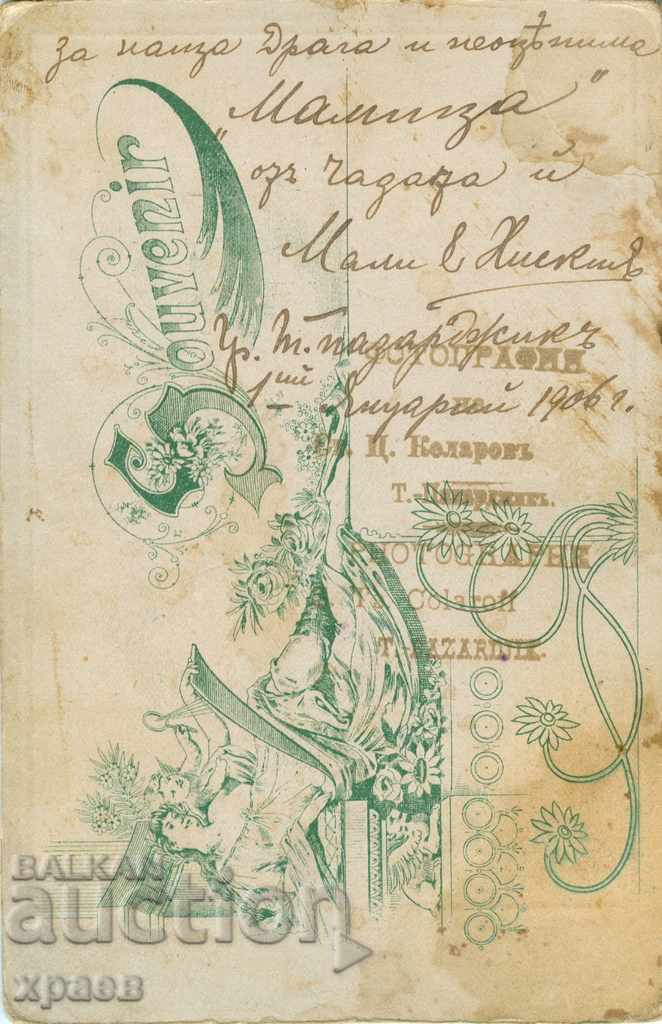 за наша Драга и неоцѣнима
„Мамица"
отъ чадата й
Мали &
Гр. Т. Пазарджикъ
1ий Януарий 1906 г.
Souvenir
ФОТОГРАФИЯ
на
Ц. Коларовъ
Т.-Пазарджикъ.
PHOTOGRAPHIE
Colaroff
T. PAZARDJIK.
BALKAN
auction
храев